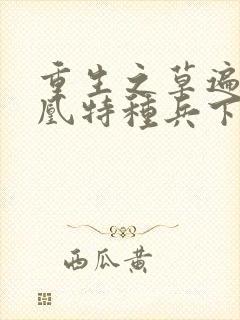 重生之草遍
凰特種兵下
西瓜黄